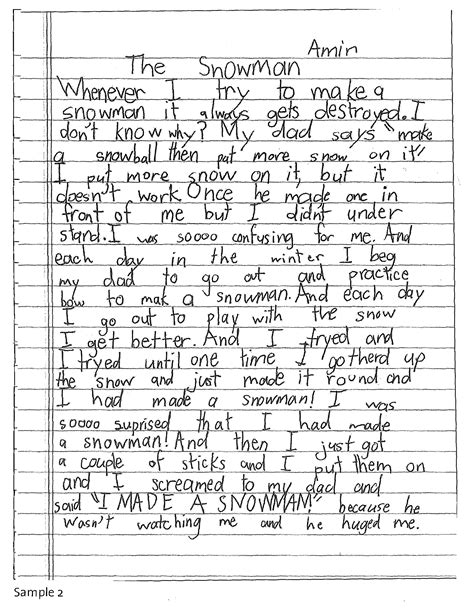 Amin
The Snowman
Whenever I try to make a
snowman it always gets destroyed. I
don't know why? My dad says "make
a snowball then put more snow on it"
I put more snow on it, but it
doesn't work. Once he made one in
front of me but I didn't under
stand. I was soooo confusing for me. And
each day in the winter I beg
my dad to go out and practice
how to mak a snowman. And each day
I go out to play with the snow
I get better. And I tryed and
I tryed until one time I gotherd up
the snow and just made it round and
I had made a snowman! I was
soooo suprised that I had made
a snowman! And then I just got
a couple of sticks and I put them on
and I screamed to my dad and
said "I MADE A SNOWMAN!" because he
wasn't watching me and he huged me.
Sample 2